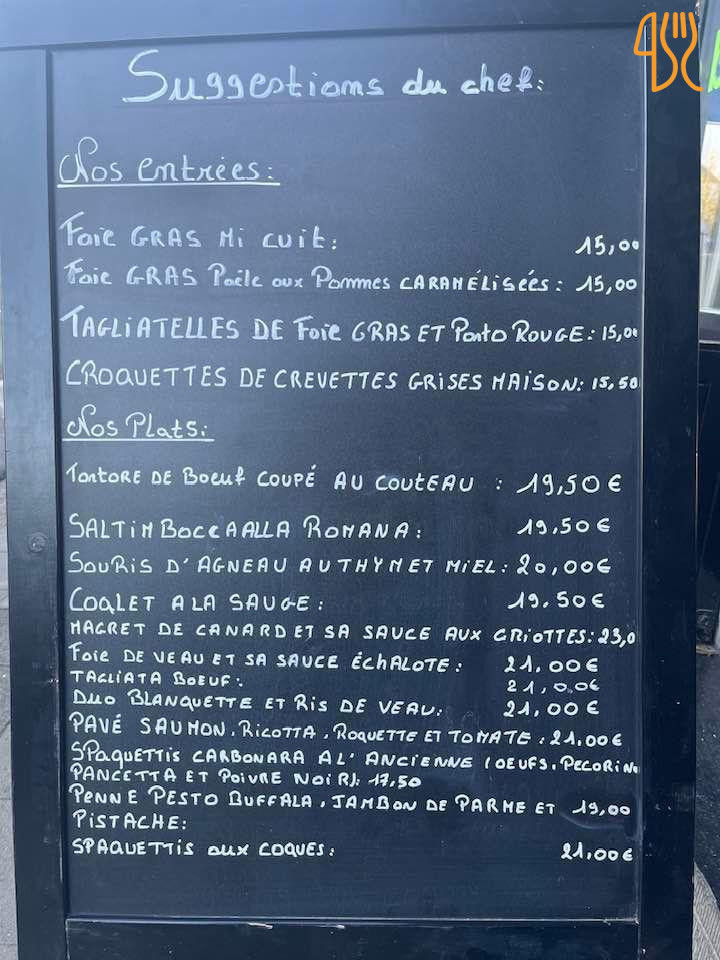 Suggestions du chef:
Nos entrées:
Foie GRAS Mi CUIT: 15,00
Foie GRAS Poêle aux Pommes CARAMÉLiSéES: 15,00
TAGLIATELLES DE Foie GRAS ET Porto ROUGE: 15,00
CROQUETTES DE CREVETTES GRISES MAISON: 15,50
Nos Plats:
Tartare DE Boeuf COUPÉ AU COUTEAU : 19,50€
SALTIMBOCCA ALLA ROMANA: 19,50€
SOURIS D'AGNEAU AU THYM ET MIEL: 20,00€
COQLET A LA SAUGE: 19.50€
MAGRET DE CANARD ET SA SAUCE AUX GRIOTTES: 23,0
Foie DE VEAU ET SA SAUCE ÉCHALOTE: 21.00€
TAGLIATA BOEUF: 21,00€
DUO BLANQUETTE ET RIS DE VEAU: 21,00€
PAVÉ SAUMON, RICOTTA, ROQUETTE ET TOMATE: 21,00€
SPAQUETTIS CARBONARA A L'ANCIENNE (OEUFS, PECORINO
PANCETTA ET POIVRE NOIR): 17,50
PENNE PESTO BUFFALA, JAMBON DE PARME ET 19,00
PISTACHE:
SPAQUETTIS aux COQUES: 21.00€